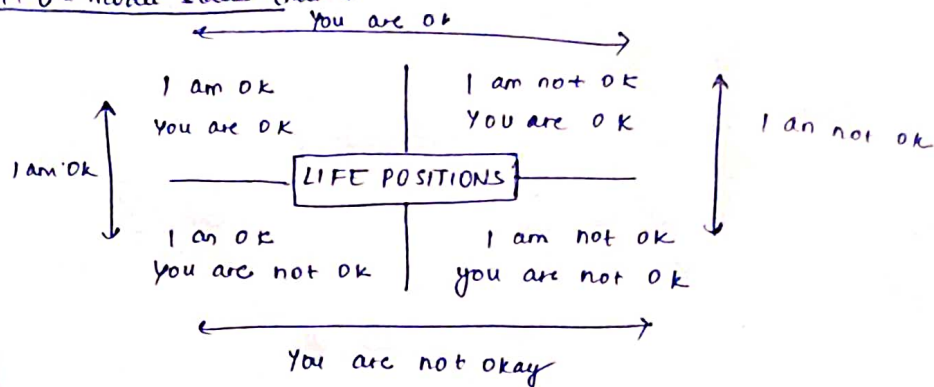 You are ok
I am ok
You are OK
I am not OK
You are OK
I am ok
I an not ok
LIFE POSITIONS
I an OK
You are not ok
I am not ok
you are not ok
You are not okay